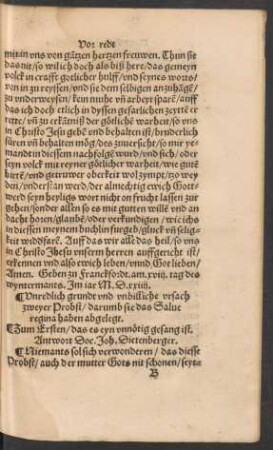 Vor rede
mit in vns von gātzen hertzen freuwen. Thun sie
das nit/ so wil ich doch als biß here/ das gemeyn
volck in crafft gotlicher hulff/ vnd seynes worts/
von in zu reyssen/ vnd sie dem selbigen anzuhāgē/
zu vnderweysen/ kein muhe vñ arbeyt sparē/ auff
das ich doch etlich in dyssen gefarlichen zeyttē er
rette/ vñ zu erkātniß der gōtlichē warheit/ so vns
in Christo Jesu gebē vnd behalten ist/ brüderlich
fūren vñ behalten mōg/ des zuuersicht/ so mir ye-
mandt in diessem nachfolgē wurd/ vnd sich/ oder
seyn volck mit reyner gōtlicher warheit/ wie gutē
hirtē/ vnd getruwer oberkeit wolzympt/ wō zey
den/ vnderstan werd/ der almechtig ewich Gott
werd seyn heyligs wort nicht on frucht lassen zur
gehen/ sonder allen so es mit gutten wille vnd an
dacht hōren/ glaubē/ oder verkundigen/ wie ichs
in diessen meynem buchlin furgeb/ gluck vñ selig-
keit widdfarē. Auff das wir alle das heil/ so vns
in Christo Jhesu vnsern herren auffgericht ist/
erkennen vnd also ewich leben/ vnnd Got lieben/
Amen. Geben zu Franckfordt. am. xviij. tag des
wyntermants. Im iar M. D. xxiiij.
¶Unredlich grundt vnd vnbilliche vrsach
zweyer Probst/ darumb sie das Salue
regina haben abgelegt.
¶Zum Ersten/ das es eyn vnnōtig gesang ist.
Antwort Doc. Joh. Dietenberger.
¶Niemants sol sich verwonderen/ das diesse
Probst/ auch der mutter Gots nit schonen/ seyt-
B